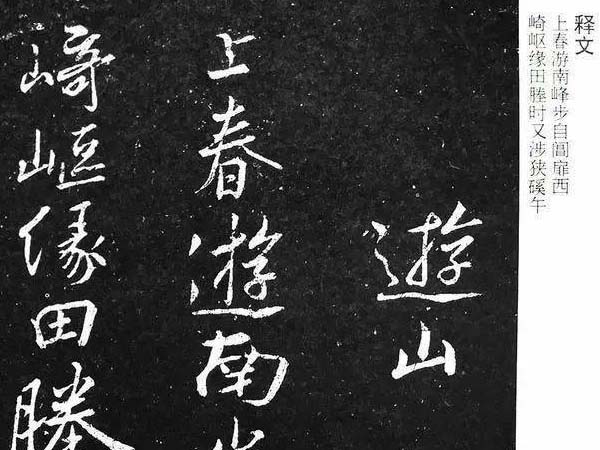 释文
上春游南峰步自闾扉西
崎岖缘田塍时又涉狭磎午
遊山
上春遊南
崎嶇緣田塍